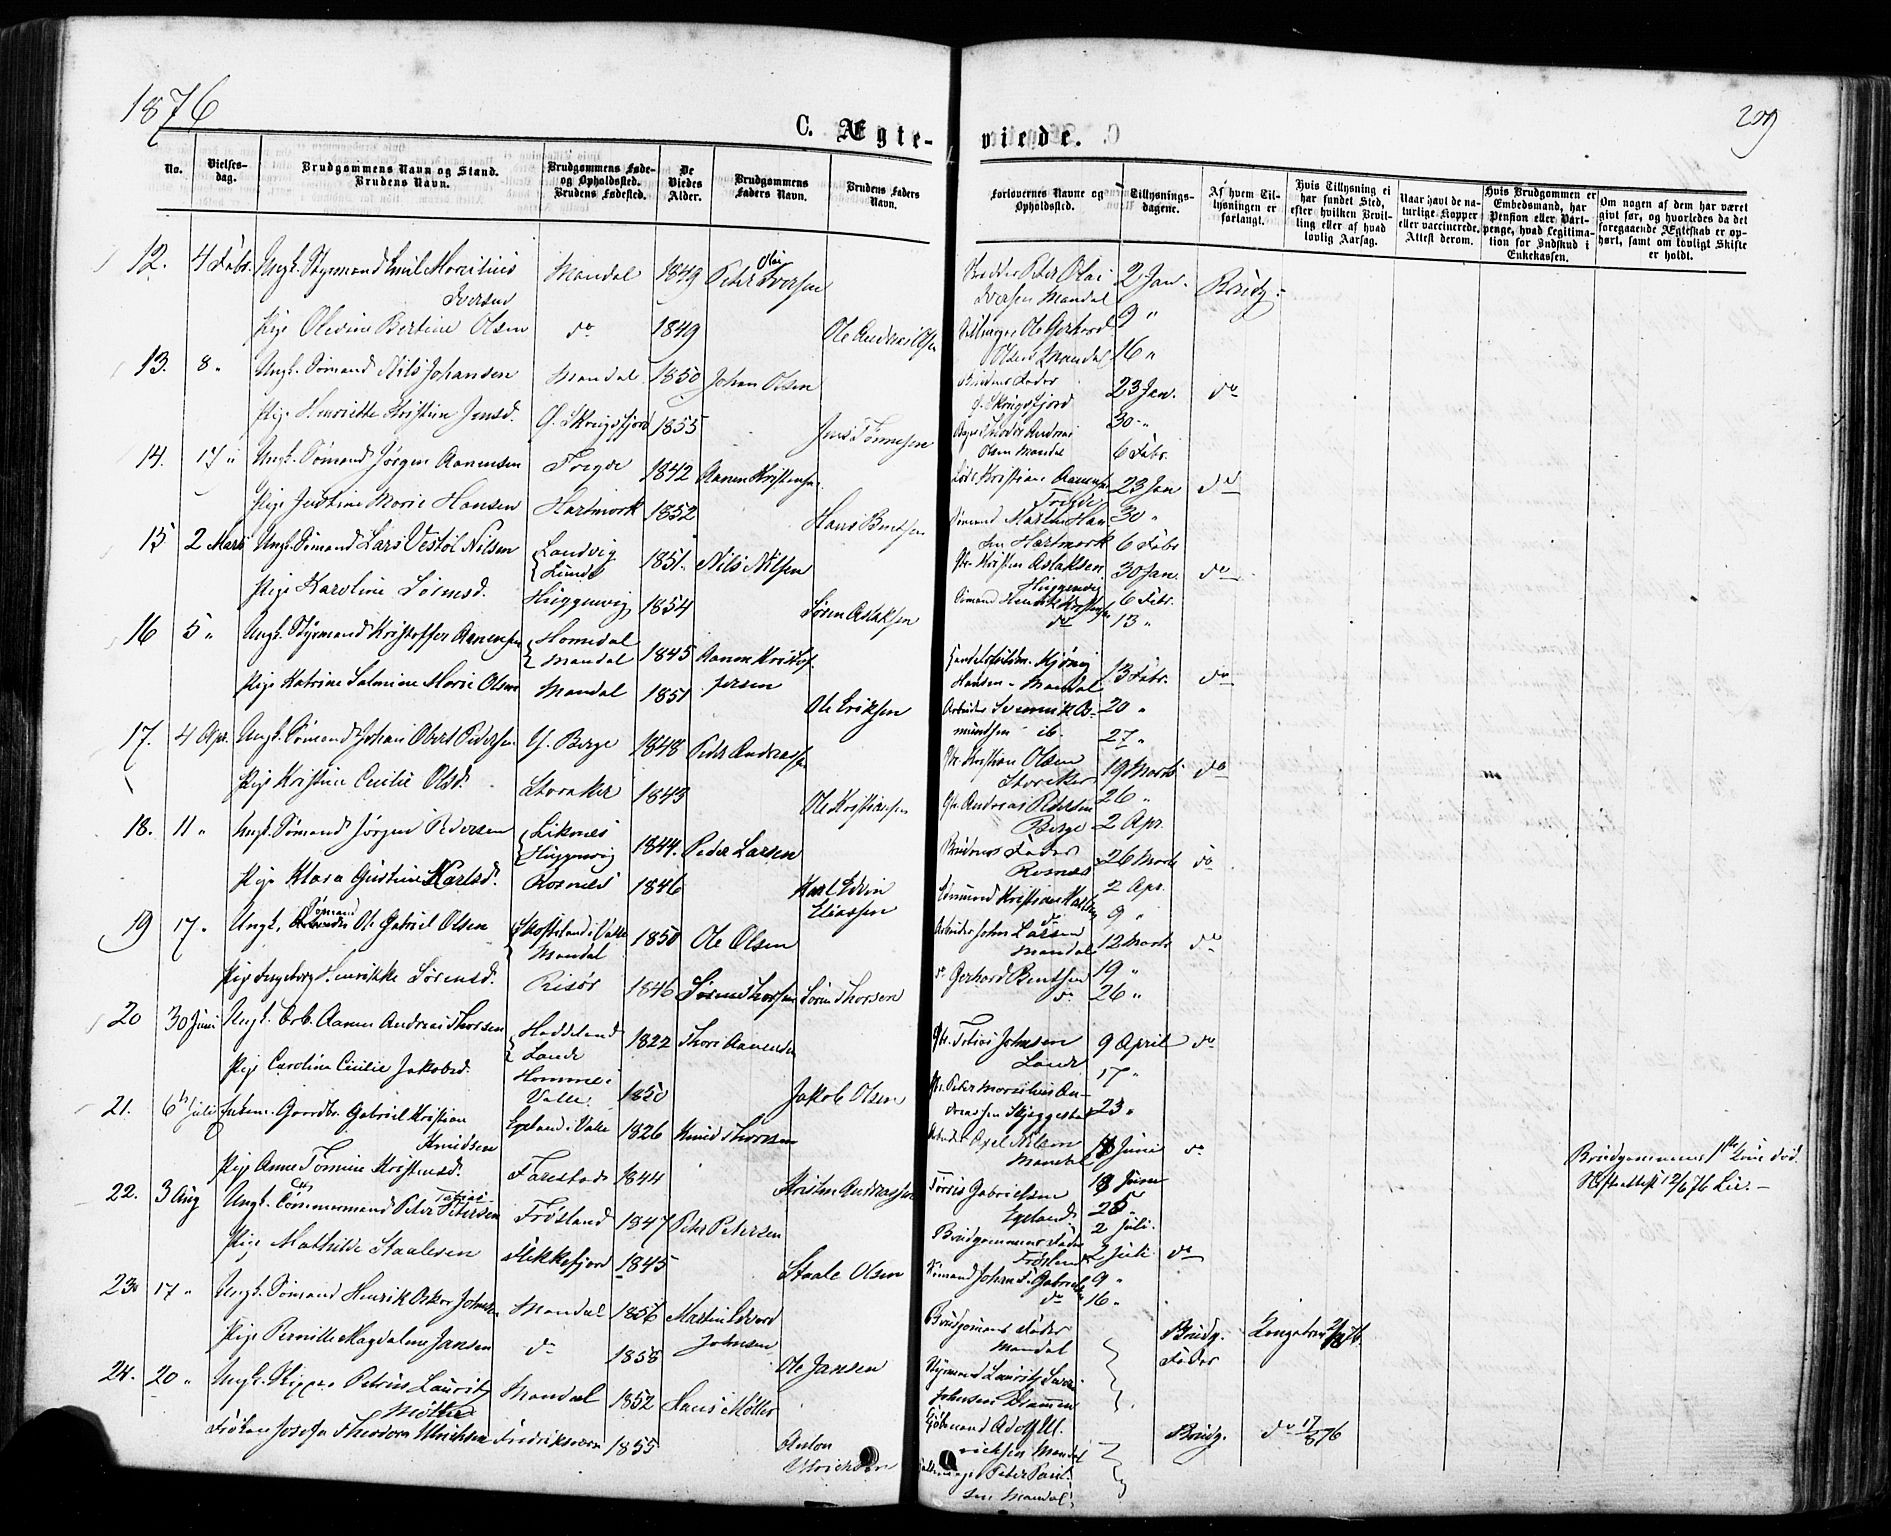 1876
209
C. Ægteviede.
No.
Vielsesdag.
Brudgommens Navn og Stand. Brudens Navn.
Brudgommens Føde- og Opholdssted. Brudens Fødested.
De Viedes Alder.
Brudgommens Faders Navn.
Brudens Faders Navn.
Forlovernes Navne og Opholdssted.
Tillysningsdagene.
Af hvem Tillysningen er forlangt.
Hvis Tillysning ei har fundet Sted, efter hvilken Bevilling eller af hvad lovlig Aarsag.
Naar havt de naturlige Kopper eller vaccinerede. Attest derom.
Hvis Brudgommen er Embedsmand, har Pension eller Vartpenge, hvad Legitimation for Indskud i Enkekassen.
Om nogen af dem har været givt før, og hvorledes da det foregaaende Ægteskab er ophørt, samt om lovligt Skifte er holdt.
12. 4 Febr. Ungk. Styrmand Emil Iversen Mandal 1849 Peter Olai Iversen
Peter Olai Iversen Mandal 2 Jan. Brudg.
Pige Olevine Bertine Olsen do 1849 Ole Andreas Olsen
Ole Gerhard Olsen Mandal 9 " 16 "
13. 8 " Ungk. Sømand Nils Johansen Mandal 1850 Johan Olsen
Brudens Fader 23 Jan. do
Pige Henriette Kristine Jensd. 1855 Jens Tønnesen
Andreas Olsen Mandal 30 " 6 Febr.
14. 17 " Ungk. Sømand Jørgen Aanensen Tregde 1842 Aanen Kristensen
Kristian Aanensen Tregde 23 Jan do
Pige Justine Marie Hansen Hartmark 1852 Hans Bentsen
Sømand Martin Hansen Hartmark 30 " 6 Febr
15 2 Mars Ungk. Sømand Lars Vestøl Nilsen Landvig 1851 Nils Nilsen
Kristen Aslaksen Huggenvig 30 Jan. do
Pige Karoline Sørensd. Huggenvig 1854 Søren Aslaksen
Sømand Henrik do 6 Febr. 13 "
16 5 " Ungk. Styrmand Kristoffer Aanensen Homedal Mandal 1845 Aanen Kristoffersen
Hansen - Mandal 13 Febr. do
Pige Katrine Salmine Marie Olsen Mandal 1851 Ole Eriksen
Arbeider Svennik Osmundsen ib. 20 " 27 "
17. 4 Apr. Ungk. Sømand Johan Obert Pedersen Y. Berge 1848 Peder Andreassen
Kristian Olsen Storaker 19 Marts do
Pige Kristine Cecilie Olsd. Storaker 1843 Ole Kristensen
Andreas Pedersen Berge 26 " 2 Apr.
18. 11 " Ungk. Sømand Jørgen Pedersen Liknes Huggenvig 1844. Peder Larsen
Brudens Fader Rosnes 26 Marts do
Pige Klara Gustine Karlsd. Rosnes 1846 Karl Edvin Eliassen
Sømand Kristian Karlsen do 2 Apr. 9 "
19 17 " Ungk. Sømand Ole Gabriel Olsen i Valle Mandal 1850 Ole Olsen
Arbeider John Larsen Mandal 12 Marts do
Pige Ingeborg Henrikke Sørensd. Risør 1846 Søren Thorsen Søren Thorsen
do Gerhard Bentsen do 19 " 26 "
20 30 Juni Ungk. Arb. Aanen Andreas Thorsen Haddeland Lande 1822 Thore Aanensen
Tobias Johnsen Lande 9 April do
Pige Caroline Cecilie Jakobsd. Homme i Valle. 1850 Jakob Olsen
Peter Marselius Andreassen Skjeggestad 17 " 23 "
21. 6 Juli Enkem. Gaardbr. Gabriel Kristian Knudsen Egeland i Valle 1826 Knud Thorsen
Arbeider Axel Nilsen Mandal Juni do
Brudgommens 1ste Kone død.
Skifteattest 12/6 76 Lie. -
Pige Anne Tomine Kristensd. Farestad 1844 Kristen Andreassen
Gabrielsen Egeland 18 Juni 25 " 2 Juli.
22. 3 Aug Ungk. Tømmermand Peter Tobias Petersen Frøsland 1847 Peter Petersen
Brudgommens Fader Frøsland 2 Juli do
Pige Mathilde Staalesen Flekkefjord 1845 Staale Olsen
Sømand Johan F. Gabrielsen do 9 " 16 "
23. 17 " Ungk. Sømand Henrik Oskar Johnsen Mandal 1856 Martin Edvard Johnsen
Brudgommens Fader Mandal Brudg. Fader Kongebrev 76.
Pige Pernille Magdalene Jansen do 1858 Ole Jansen
Styrmand Lauritz Johnsen Drammen
24. 20 " Ungk. Skipper Petrus Lauritz Møller Mandal 1852 Hans Møller
Kjøbmand Adolf Ulrichsen Mandal Brudg. do 17/8 76
Frøken Josefa Theodora Ulrichsen Fredriksværn 1855 Anton Ulrichsen
Peter Paulsen Mandal